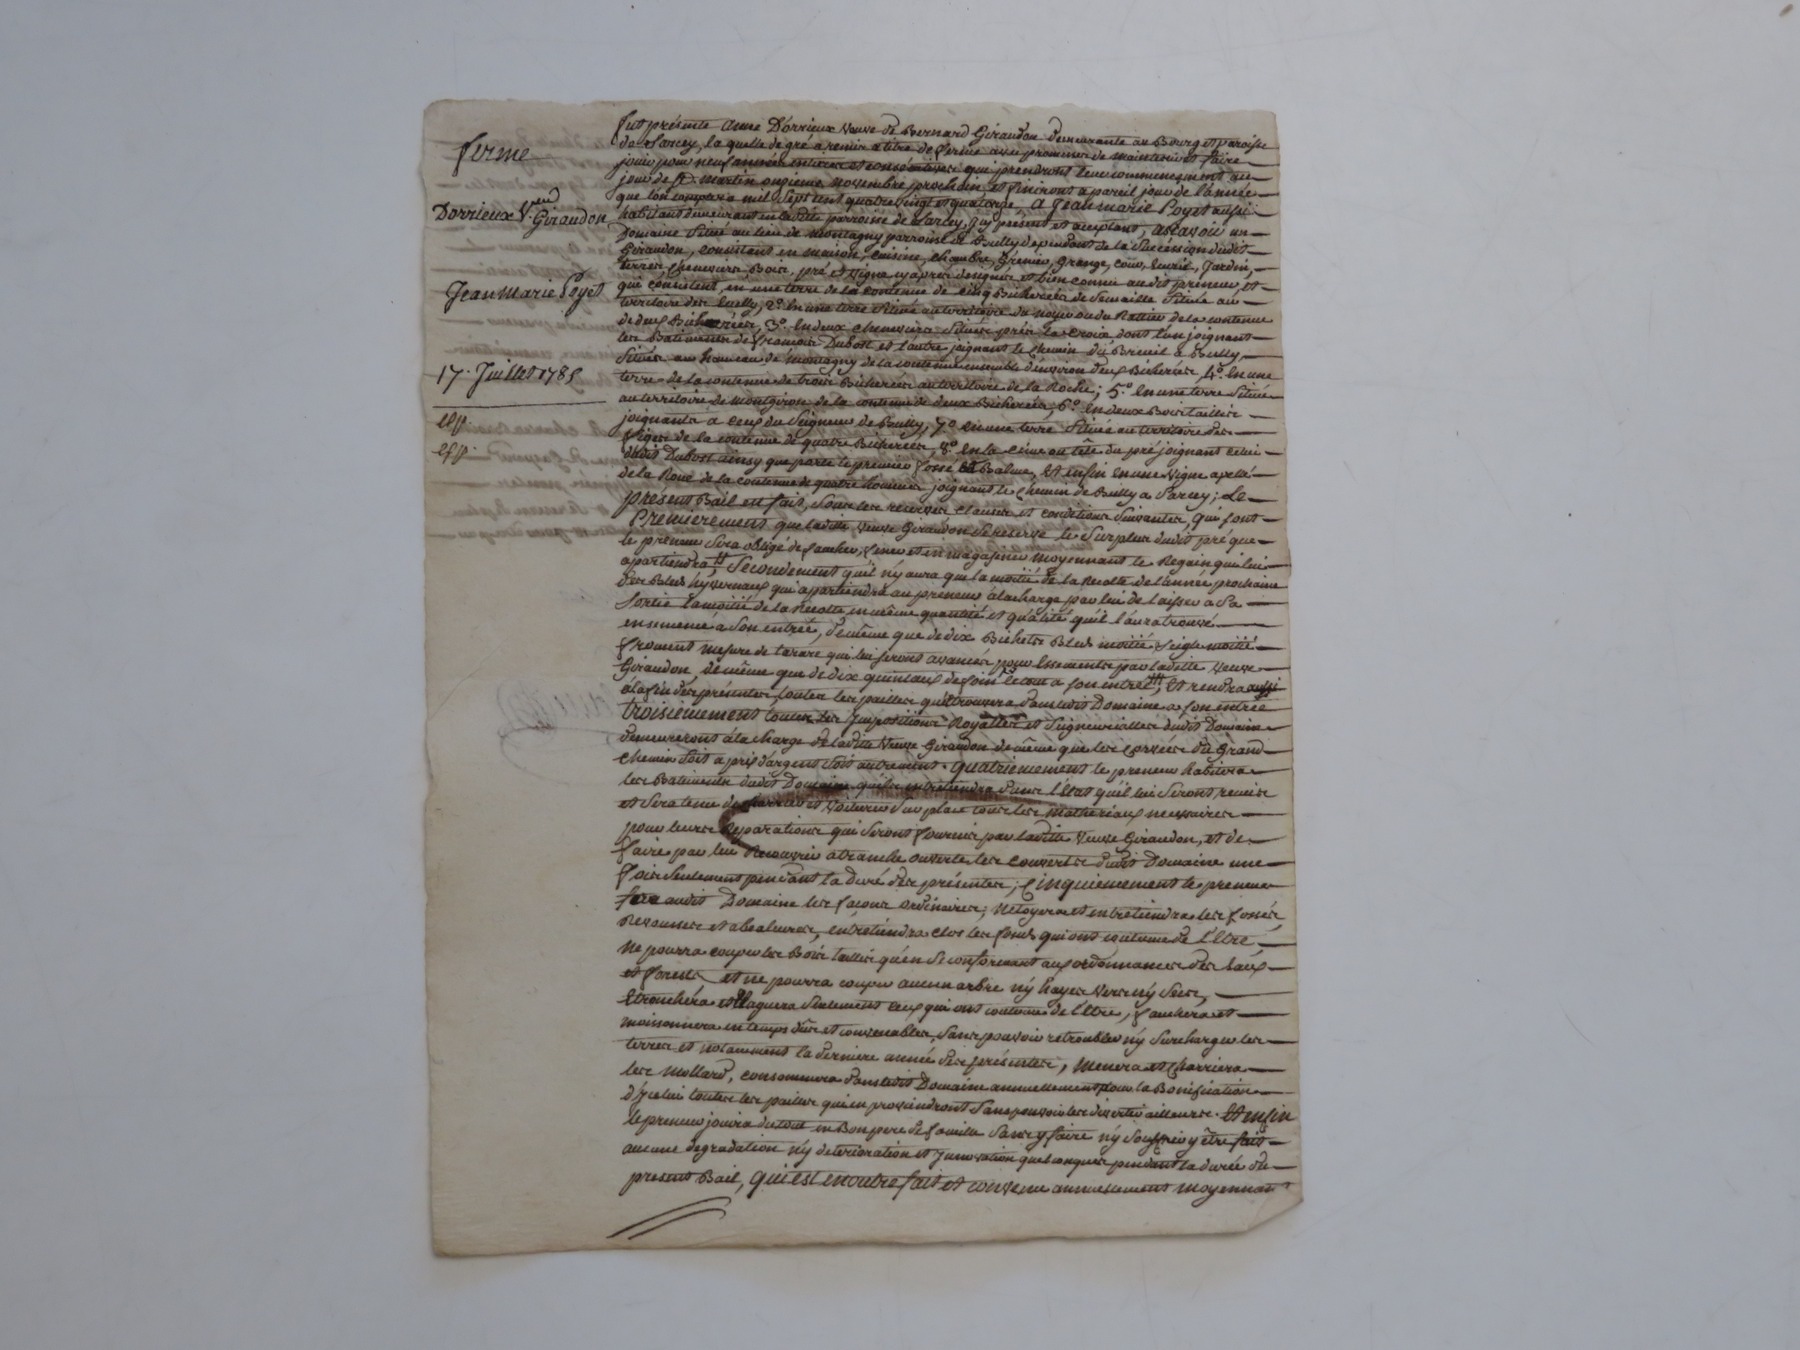 ferme
Dorrieux Veue
Giraudon
Jean Marie Poyet
17. Juillet 1785
Exp.
Exp.
fut présente Anne Dorrieux veuve de Bernard Giraudon demeurante au Bourg et paroisse
de Sarcey, la quelle de gré a remis a titre de ferme avec promesse de maintenir et faire
jouir pour neuf années entieres et consécutives qui prendront leur commencement au
jour de St. Martin onzieme novembre prochain, et finiront a pareil jour de l'année
que l'on comptera mil sept cent quatre vingt et quatorze, A Jean marie Poyet aussi
habitant demeurant en laditte parroisse de Sarcey, Icy présent et acceptant, asçavoir un
Domaine situé au lieu de Montagny parroisse de Bully dependant de la succéssion dudit
Giraudon, consistant en maison, cuisine, chambre, grenier, grange, cour, Ecurie, Jardin,
terres chenevieres, Bois, pré et vigne cy après designés et bien connu audit preneur, et
qui consistent, en une terre de la contenue de cinq Bicherées de Semaille située au
territoire des 2°. En une terre située au territoire du noyer ou du de la contenue
de deux Bicherées, 3°. En deux chenevieres situées près la croix dont l'un joignant
les Batiments de françois Dubost et l'autre joignant le chemin du Breuil a Bully
situées au hameau de Montagny de la contenue ensemble d'environ deux Bicherées, 4°. En une
terre de la contenue de trois Bicherées au territoire de la Roche; 5°. En une terre située
au territoire de Montgiron de la contenue de deux Bicherées, 6°. En deux Bois taillis
joignants a ceux du Seigneur de Bully, 7°. En une terre située au territoire des
de la contenue de quatre Bicherées, 8°. En la cime ou tête du pré joignant celui
dudit Dubost ainsy que porte le premier fossé Balme, Et enfin en une vigne apellé
de la Roué de la contenue de quatre hommes joignant le chemin de Bully a Sarcey; Le
présent Bail est fait, sous les reserves clauses et conditions suivantes, Qui sont
Premierement que laditte veuve Giraudon se reserve le surplus dudit pré que
le preneur sera obligé de faucher, fener et en magasiner moyennant le Regain qui lui
apartiendra; Secondement qu'il n'y aura que la moitié de la Recolte de l'année prochaine
des Bleds hyvernaux qui apartiendra au preneur a la charge par lui de laisser a sa
sortie la moitié de la Recolte, en même quantité et qualité qu'il l'aura trouvé
ensemencé a son entrée, de même que de dix Bichets Bled moitié seigle moitié
froment mesure de tarare qui lui seront avancés pour Ensemencer par laditte veuve
Giraudon, de même que de dix quintaux de foin le tout a son entrée, Et rendra aussi
a la fin des présentes, toutes les pailles qu'il trouvera dans ledit Domaine a son entrée
troisiemement toutes les Impositions Royalles et Seigneurialles dudit Domaine
demeureront a la charge de laditte veuve Giraudon de même que les corvées du Grand
chemin soit a prix d'argent soit autrement. Quatriemement le preneur habitera
les Batiments dudit Domaine qu'il entretiendra dans l'Etat qu'il lui seront remis
et sera tenu de charrier et voiturer sur place tous les mathereaux necessaires
pour leurs Reparations qui seront fournis par laditte veuve Giraudon, et de
faire par lui Recouvrir a tranche ouverte les couverts dudit Domaine une
fois seulement pendant la duré des présentes; Cinquiemement le preneur
fera audit Domaine les façons ordinaires; Netoyera et entretiendra les fossés
et abealures, entretiendra clos les fonds qui ont coutume de l'Etre
Ne pourra couper les Bois taillis qu'en se conformant aux ordonnances des Eaux
et forests, et ne pourra couper aucun arbre n'y hayes vers n'y secs,
Etronchéra et Elaguera seulement ceux qui ont coutume de l'Etre, fauchera et
moissonnera en temps dûs et convenables, sans pouvoir retroubler n'y surcharger les
terres et notamment la derniere année des présentes, Menera et charriera
les Mollard, consommera dans ledit Domaine annuellement pour la Bonification
d'Icelui toutes les pailles qui en proviendront sans pouvoir les divertir ailleurs. Et enfin
le preneur jouira du tout en Bon pere de famille sans y faire n'y souffrir y être fait
aucune degradation n'y deterioration et Innovation quelconques pendant la durée du
present Bail, Qui est en outre fait et convenu annuellement moyennant